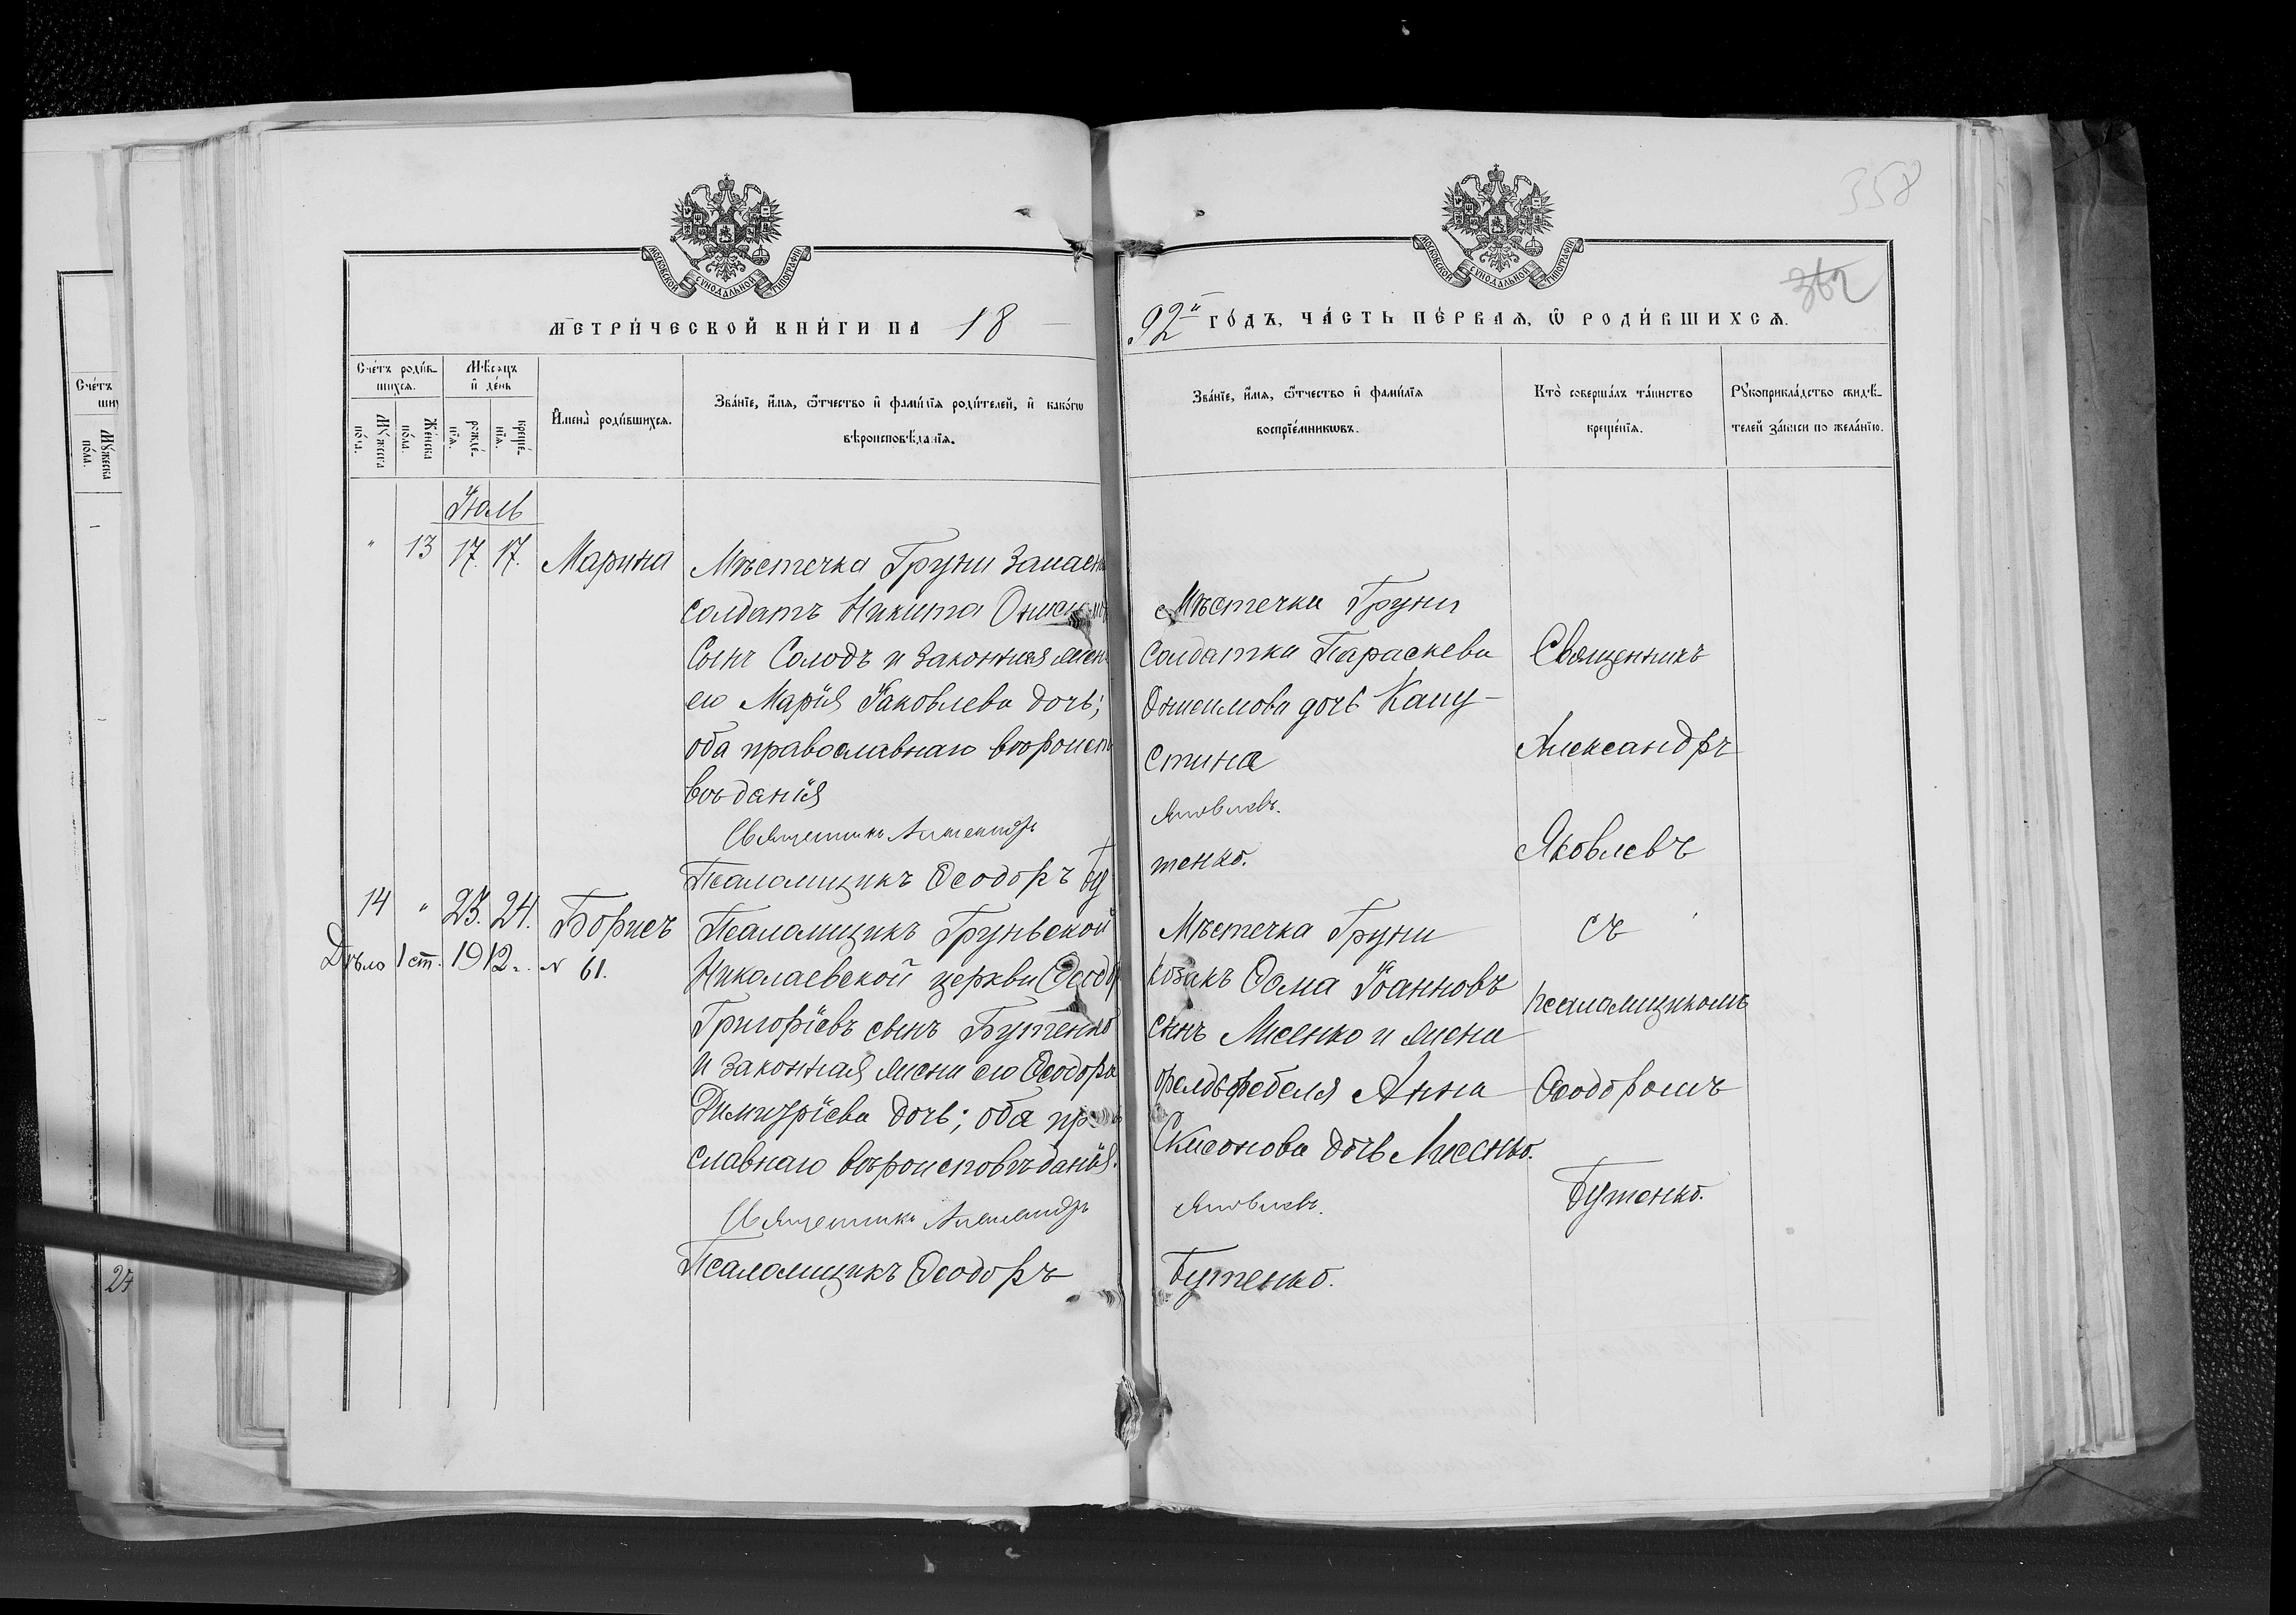 358
362
МОСКОВСКОЙ СУНОДАЛЬНОЙ ТИПОГРАФІИ
МОСКОВСКОЙ СУНОДАЛЬНОЙ ТИПОГРАФІИ
МЕТРИ́ЧЕСКОЙ КНИ́ГИ НА 18
92й ГО́ДЪ, ЧА́СТЬ ПЕ́РВАѦ, Ѽ РОДИ́ВШИХСѦ.
Сче́тъ роди́в-
шихсѧ.
Мꙋ́жеска
по́ла.
Же́нска
по́ла.
Мѣ́сѧцъ
и҆ де́нь
рожде́-
нїѧ.
креще́-
нїѧ.
И҆мена̀ роди́вшихсѧ.
Зва́нїе, и҆́мѧ, ѻ҆́тчество и҆ фами́лїѧ роди́телей, и҆ како́гѡ
вѣроисповѣ́данїѧ.
Зва́нїе, и҆́мѧ, ѻ҆́тчество и҆ фами́лїѧ
воспрїе́мникѡвъ.
Кто̀ соверша́лъ та́инство
креще́нїѧ.
Рꙋкоприкла́дство свидѣ́-
телей за́писи по жела́нїю.
Сче́тъ
Мꙋ́жеска
по́ла.
Іюль
" 13 17. 17. Марина
Мѣстечка Груни Запасн
солдатъ Никита Онисим
Сынъ Солодъ и законная жен
его Марія Іаковлева дочь;
оба православнаго вѣроиспо
вѣданія
Священникъ Александръ
Псаломщикъ Ѳеодоръ Бу
Мѣстечка Груни
солдатка Параскева
Онисимова дочь Капу-
стина
Яковлевъ.
тенко.
Священникъ
Александръ
Яковлевъ
съ
псаломщикомъ
Ѳеодоромъ
Бутенко.
14 " 23. 24. Борисъ
Дѣло 1 ст. 1912 г. № 61.
Псаломщикъ Груньской
Николаевской церкви Ѳеодор
Григоріевъ сынъ Бутенко
и законная жена его Ѳеодора
Димитріева дочь; оба пра
славнаго вѣроисповѣданія.
Священникъ Александръ
Псаломщикъ Ѳеодоръ
Мѣстечка Груни
козакъ Ѳома Іоанновъ
сынъ Лисенко и жена
фельдфебеля Анна
дочь Лисенко.
Яковлевъ.
Бутенко.
27